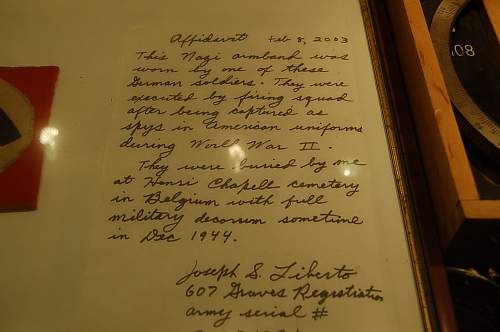 Affidavit Feb 8, 2003
This Nazi armband was
worn by one of these
German soldiers. They were
executed by firing squad
after being captured as
spys in American uniforms
during World War II.
They were buried by me
at Henri Chapell cemetery
in Belgium with full
military decorum sometime
in Dec 1944.
Joseph S. Liberto
607 Graves Registration
army serial #
.08